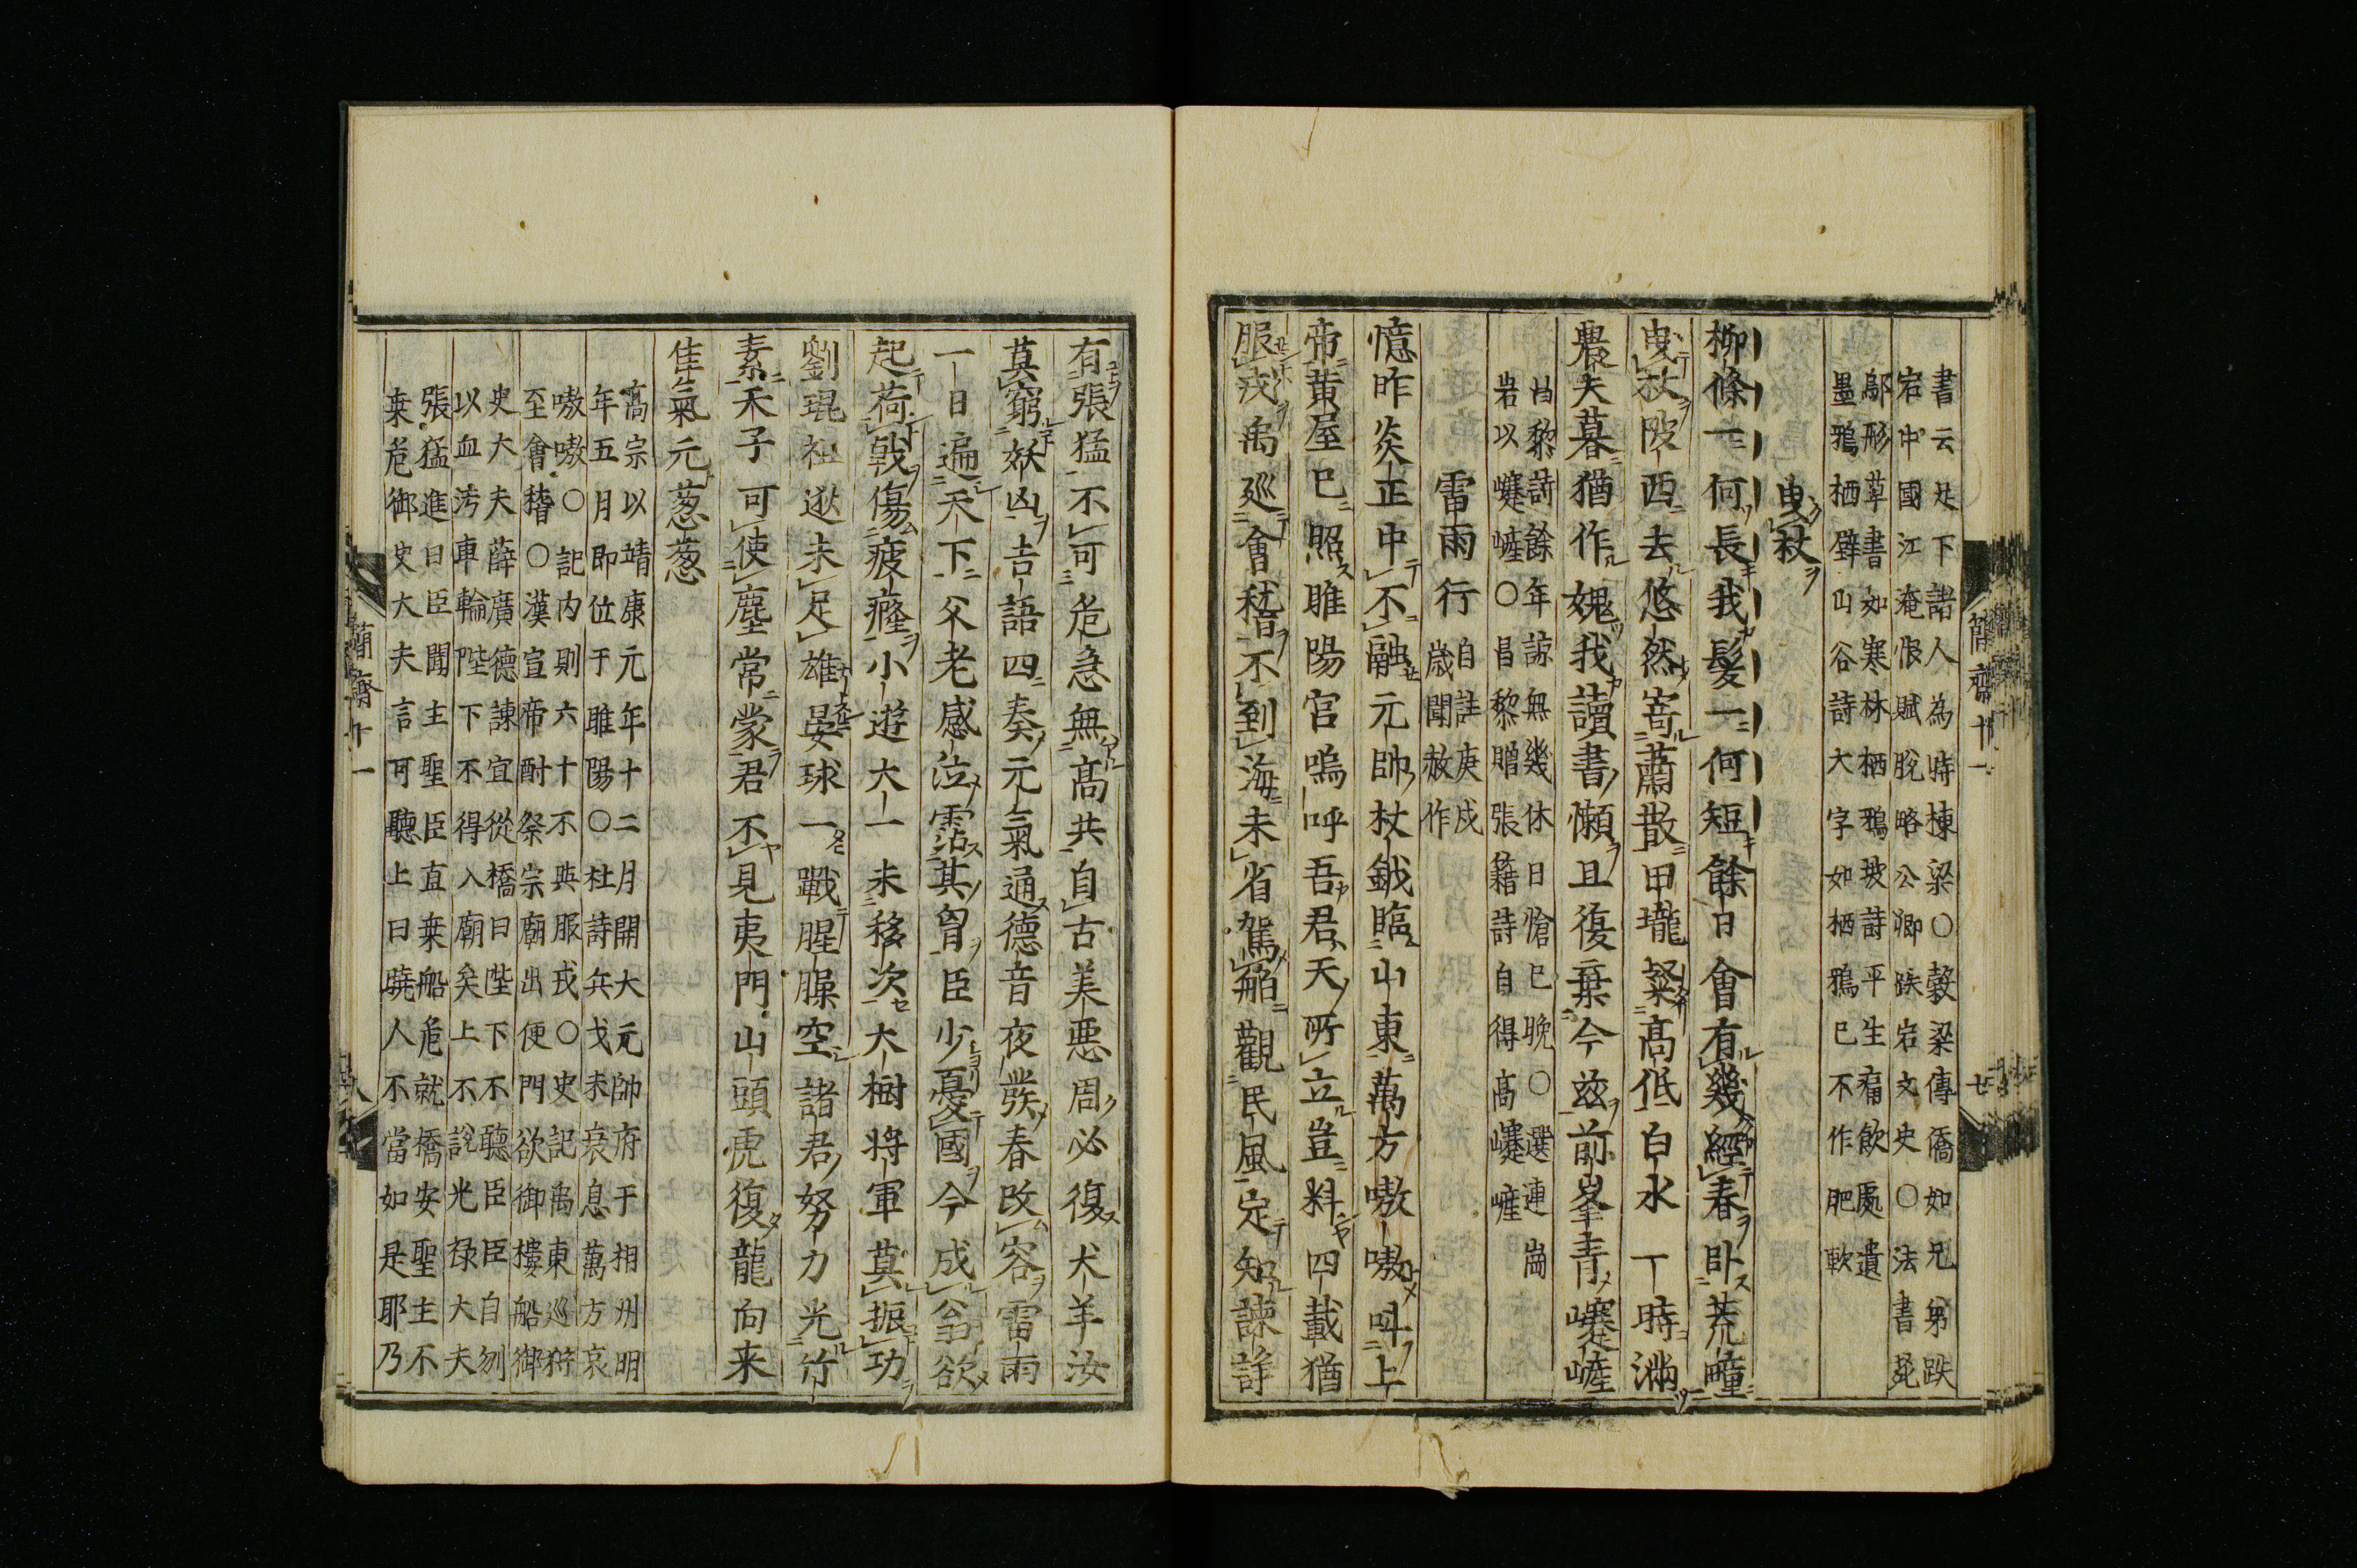 書云尗下諸人為時棟梁○糓梁傳僑如兄弟跌
宕中國江淹恨賦脫略公卿跌宕文史○法書苑
鄔彤草書如寒林栖鴉坡詩平生痛飲處遺
墨鴉栖壁山谷詩大字如栖鴉已不作肥軟
曳杖
柳條一何長我髮一何短餘日會有幾經春卧荒疃
曳杖陂西去悠然寄蕭散田壠粲高低白水一時滿
農夫暮猶作媿我讀書懶且復棄今兹前峯青巉嵯
昌黎詩餘年諒無幾休日愴已晚○選連崗
岩以巉嵯○昌黎贈張籍詩自得高巉嵯
雷雨行
自註庚戌
歲聞赦作
憶昨炎正中不融元帥杖鉞臨山東萬方嗷嗷叫上
帝黃屋已照睢陽宮嗚呼吾君天所立豈料四載猶
服戎禹巡會稽不到海未省駕舶觀民風定知諫諍
有張猛不可危急無高共自古美惡周必復犬羊汝
莫窮妖凶吉語四奏元氣通德音夜發春改容雷雨
一日遍天下父老感泣霑其胷臣少憂國今成翁欲
起荷戟傷疲癃小遊大一未移次大樹將軍莫振功
劉琨祖逖未足雄晏球一戰腥臊空諸君努力光竹
素天子可使塵常蒙君不見夷門山頭虎復龍向来
佳氣元葱葱
高宗以靖康元年十二月開大元帥府于相州明
年五月即位于睢陽○杜詩兵戈未衰息萬方哀
嗷嗷○記內則六十不與服戎○史記禹東巡狩
至會稽○漢宣帝酎祭宗廟出便門欲御樓船御
史大夫薛廣德諫宜從橋曰陛下不聽臣臣自刎
以血汚車輪陛下不得入廟矣上不說光禄大夫
張猛進曰臣聞主聖臣直乗船危就橋安聖主不
乗危御史大夫言可聽上曰曉人不當如是耶乃
簡齋十一
簡齋十一
廿